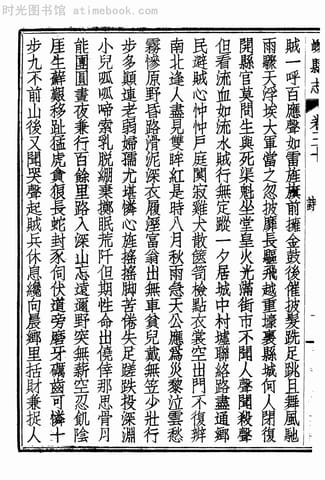 时光图书馆 - www.atimebook.com
嵊縣志 卷二十 詩
賊一呼百應聲如雷旌旗前擁金鼓後催披髮跣足跳且舞風馳
雨驟天浮埃大軍當之忽披靡長驅飛越重壕裏縣城何人閉復
開縣官莫問生與死渠魁坐堂皇火光滿街市不聞人聲聞殺聲
但看流血如流水賊行無定蹤一夕居城中村墟聯絡路盡通鄉
民避賊心忡忡戸庭闃寂雞犬散篋笥檢點衣裳空出門不復辨
南北逢人盡見雙眸紅是時八月秋雨急天公應爲災黎泣雲愁
霧慘原野昏路滑泥深衣履溼富翁出無車貧兒戴無笠少壯行
步多顛連老弱嫠孺尤堪憐心旌搖搖脚苦倦失足蹉跌投深淵
小兒呱呱啼索乳脫繃棄擲眠荒阡但期性命出僥倖那思骨月
能團圓晝夜兼行百餘里路入深山忘遠邇野突無薪空忍飢陰
厓生蘚艱移趾猛虎貪狼長蛇封豕伺伏道旁磨牙礪齒可憐十
步九不前山後又聞哭聲起賊兵休息纔向晨鄉里括財兼捉人